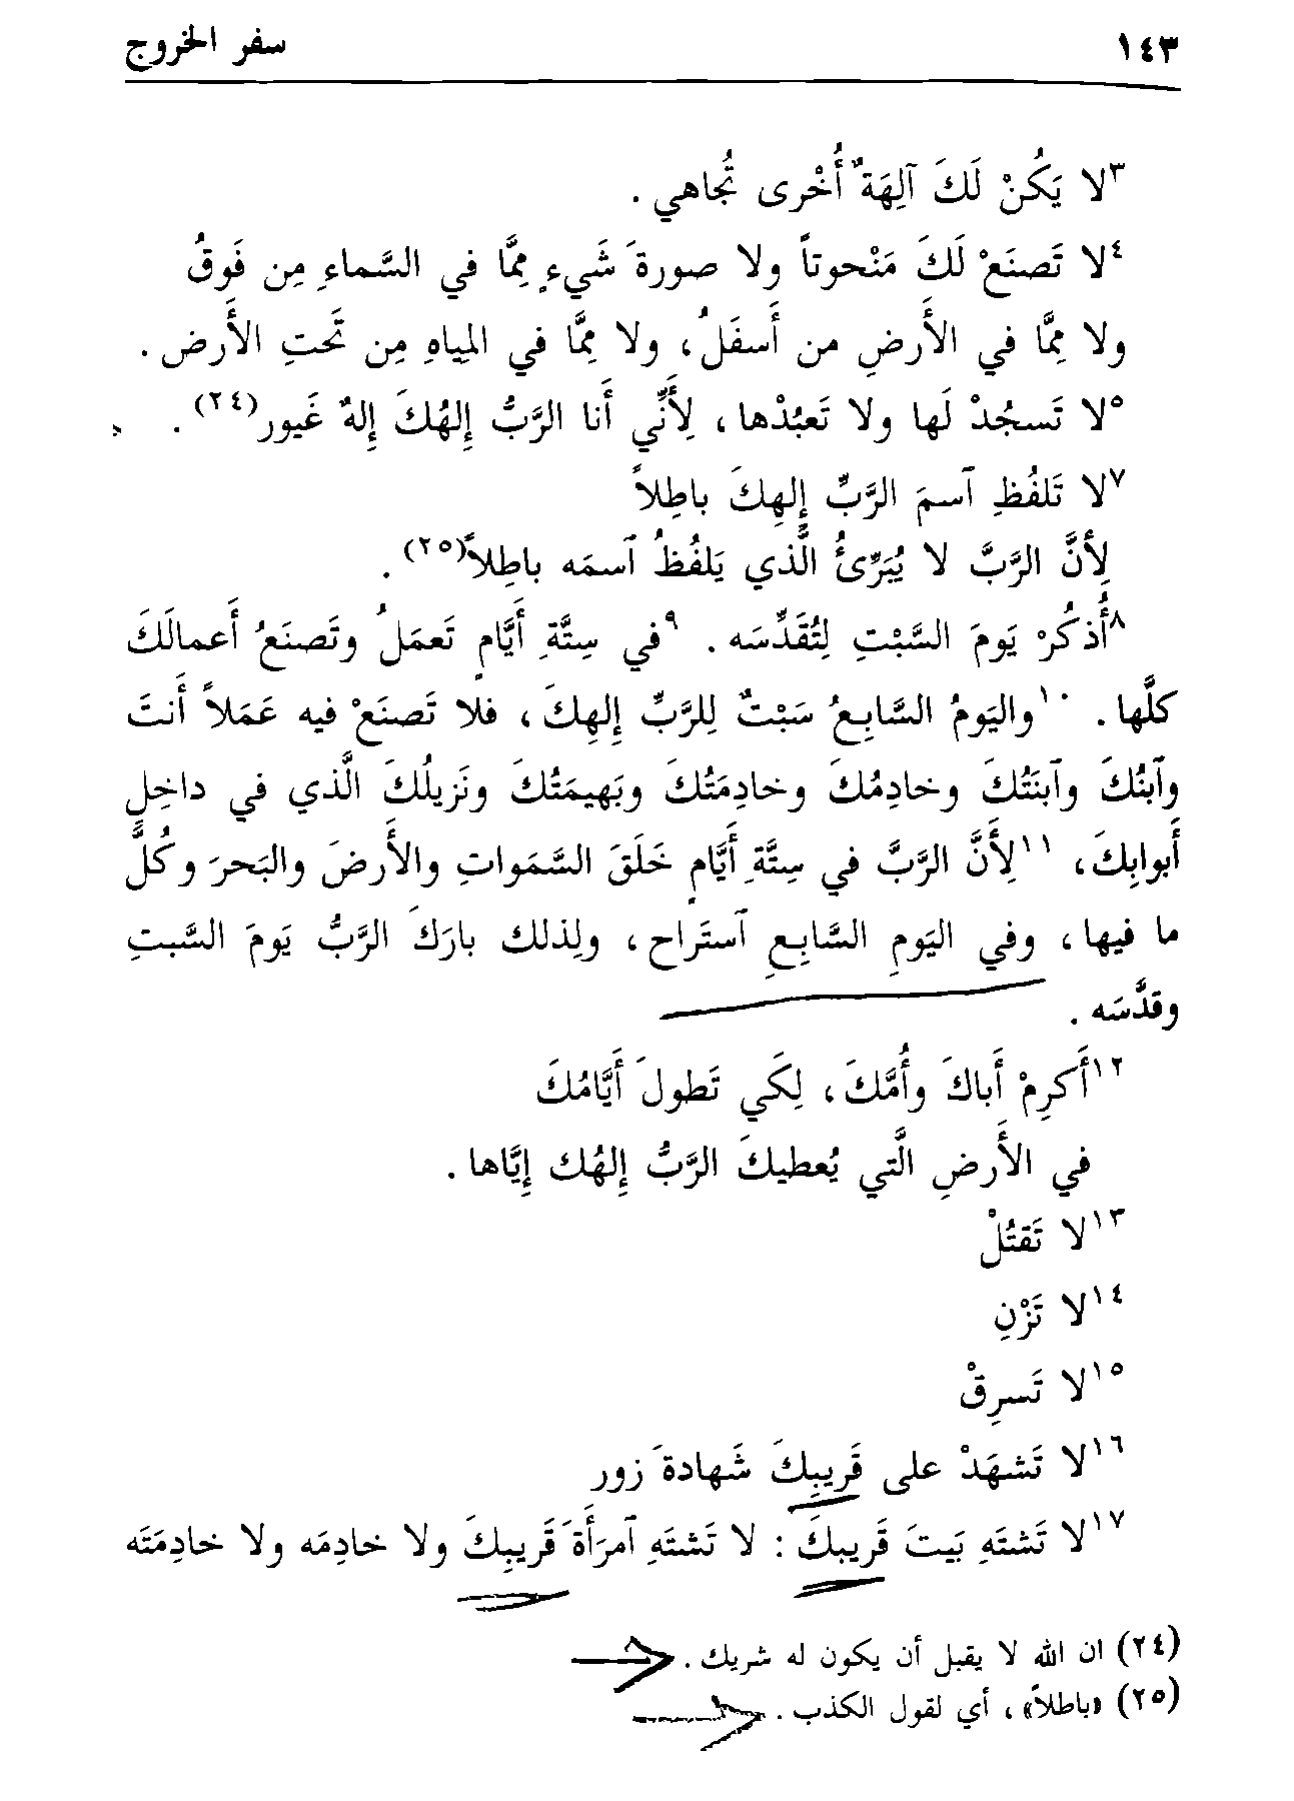 ١٤٣ سفر الخروج
٣لا يَكُنْ لَكَ آلِهَةٌ أُخْرى تُجاهي .
٤لا تَصنَعْ لَكَ مَنْحوتاً ولا صورةَ شَيءٍ مِمَّا في السَّماءِ مِن فَوقُ
ولا مِمَّا في الأَرضِ من أَسفَلُ، ولا مِمَّا في المِياهِ مِن تَحتِ الأَرض .
٥لا تَسجُدْ لَها ولا تَعبُدْها، لِأَنِّي أَنا الرَّبُّ إِلهُكَ إِلهٌ غَيور(٢٤) .
٧لا تَلفُظِ ٱسمَ الرَّبِّ إِلهِكَ باطِلاً
لِأَنَّ الرَّبَّ لا يُبَرِّئُ الَّذي يَلفُظُ ٱسمَه باطِلاً(٢٥) .
٨أُذكُرْ يَومَ السَّبْتِ لِتُقَدِّسَه . ٩في سِتَّةِ أَيَّامٍ تَعمَلُ وتَصنَعُ أَعمالَكَ
كلَّها . ١٠واليَومُ السَّابِعُ سَبْتٌ لِلرَّبِّ إِلهِكَ، فلا تَصنَعْ فيه عَمَلاً أَنتَ
وٱبنُكَ وٱبنَتُكَ وخادِمُكَ وخادِمَتُكَ وبَهيمَتُكَ ونَزيلُكَ الَّذي في داخِلِ
أَبوابِكَ، ١١لِأَنَّ الرَّبَّ في سِتَّةِ أَيَّامٍ خَلَقَ السَّمَواتِ والأَرضَ والبَحرَ وكُلَّ
ما فيها، وفي اليَومِ السَّابِعِ ٱستَراح، ولِذلك بارَكَ الرَّبُّ يَومَ السَّبتِ
وقدَّسَه .
١٢أَكرِمْ أَباكَ وأُمَّكَ، لِكَي تَطولَ أَيَّامُكَ
في الأَرضِ الَّتي يُعطيكَ الرَّبُّ إِلهُك إِيَّاها .
١٣لا تَقتُلْ
١٤لا تَزْنِ
١٥لا تَسرِقْ
١٦لا تَشهَدْ على قَريبِكَ شَهادةَ زور
١٧لا تَشتَهِ بَيتَ قَريبكَ : لا تَشتَهِ ٱمرَأَةَ قَريبِكَ ولا خادِمَه ولا خادِمَتَه
(٢٤) ان الله لا يقبل أن يكون له شريك .
(٢٥) «باطلاً»، أي لقول الكذب .